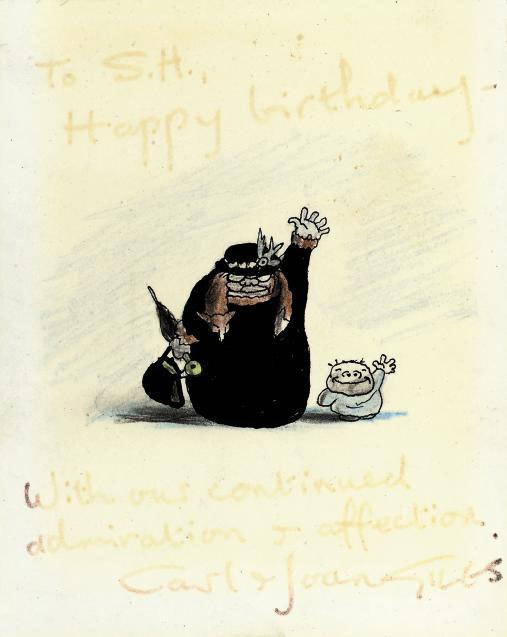 To S.H.,
Happy birthday -
With our continued
admiration & affection.
Carl & Joan GILES